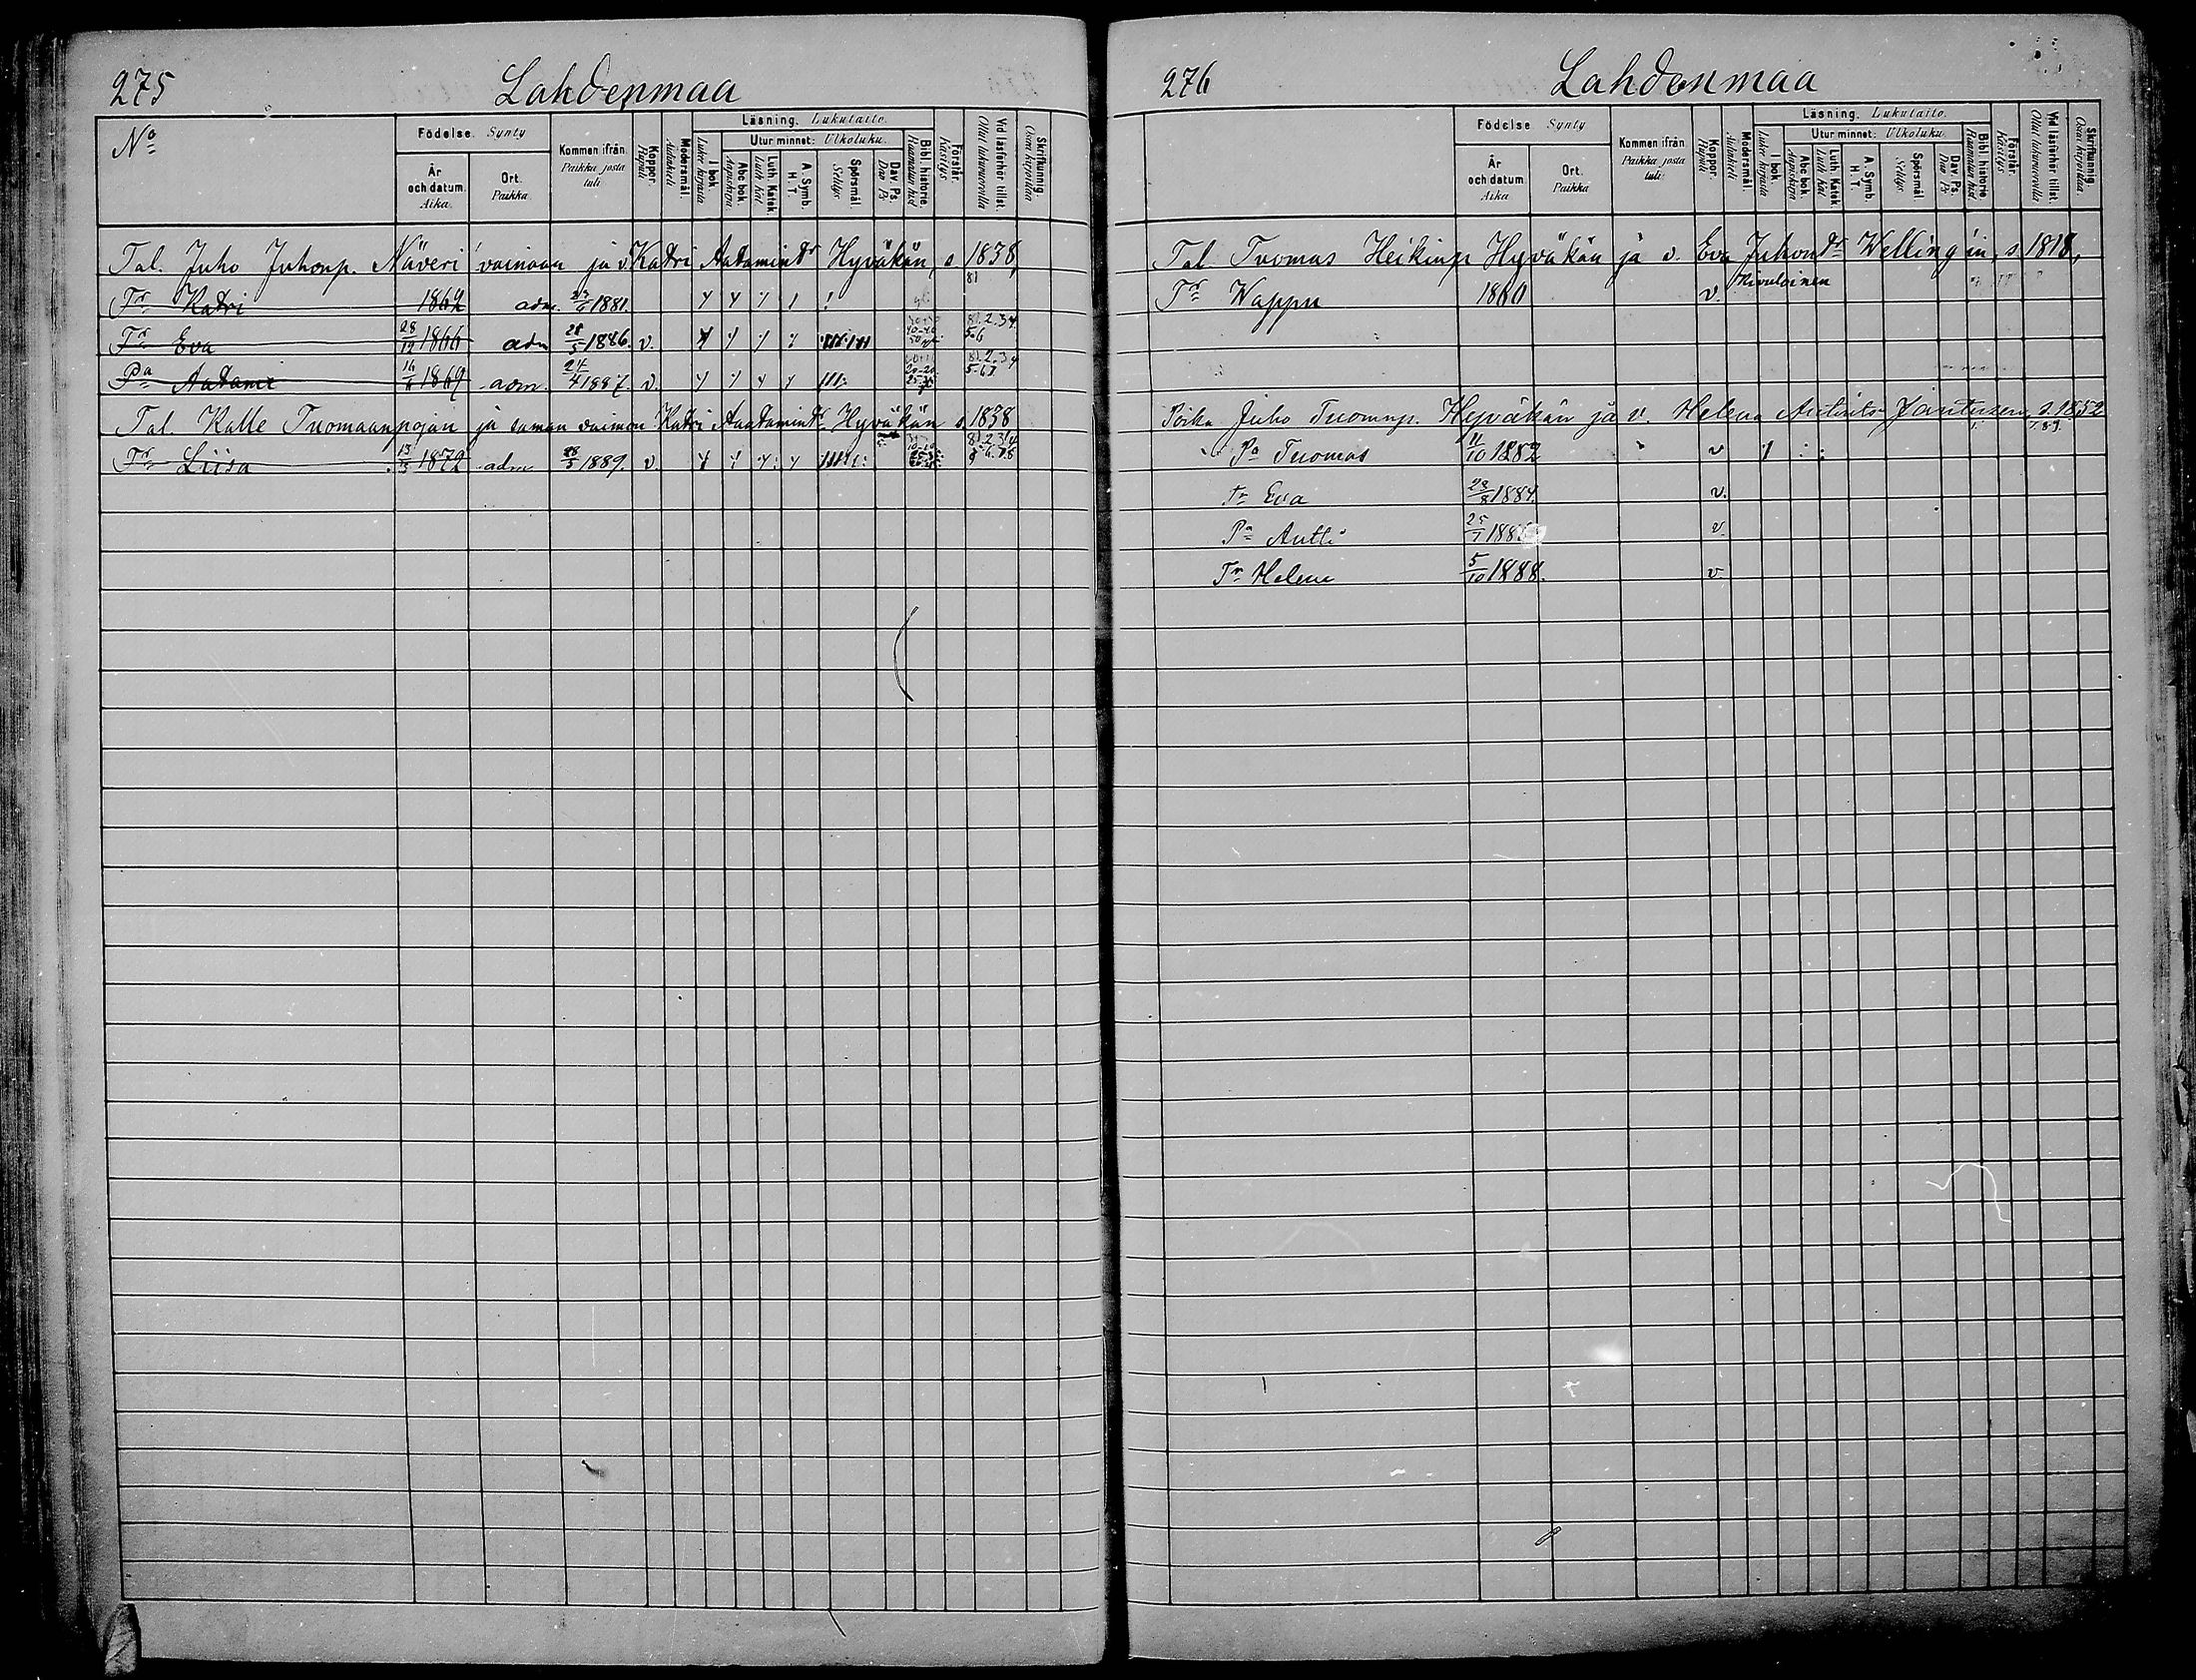 275 Lahdenmaa
No
Födelse. Synty
År och datum. Aika.
Ort. Paikka.
Kommen ifrån. Paikka josta tuli
Koppor. Rupuli
Modersmål. Äidinkieli
Läsning. Lukutaito.
I bok. Lukee kirjasta
Utur minnet: Ulkoluku.
Abc bok. Aapiskirja.
Luth. Katek. Luth. Kat.
A. Symb. H. T.
Spörsmål. Selitys.
Dav. Ps. Dav. Ps.
Bibl. historie. Raamatun hist.
Förstår. Käsitys
Vid läsförhör tillst. Ollut lukuvuorolla
Skrifkunnig. Osaa kirjoittaa
Tal. Juho Juhonp. Näveri vainaan ja v. Katri Aatamintr Hyväkän, s 1838,
Tr Katri 1862 adm. 1881. 81
Tr Eva 28/12 1866 adm 28/5 1886. v. 81.2.34 5.6
Pa Aatami 16/6 1869 adm. 24/4 1887. v. 81.2.34 5.67
Tal. Kalle Tuomaanpojan ja saman vaimon Katri Aaatamintr Hyväkän s. 1838
Tr Liisa 13/3 1872 adm 28/5 1889. v.
276 Lahdenmaa
Födelse Synty
År och datum Aika
Ort. Paikka
Kommen ifrån Paikka josta tuli:
Koppor. Rupuli
Modersmål. Äidinkieli
Läsning. Lukutaito.
I bok. Lukee kirjasta
Utur minnet: Ulkoluku.
Abc bok. Aapiskirja
Luth. Katek. Luth. Kat.
A. Symb. H. T.
Spörsmål Selitys.
Dav. Ps. Dav. Ps.
Bibl. historie. Raamatun hist.
Förstår. Käsitys.
Vid läsförhör tillst. Ollut lukuvuorolla
Skrifkunnig. Osaa kirjoittaa.
Tal. Tuomas Heikinp Hyväkän ja v. Eva Juhontr Wellingin, s 1818,
Tr Wappu 1860 v.
Poika Juho Tuomap. Hyväkän ja v. Helena Antintr Jantusen, s. 1852
Pa Tuomas 11/10 1882 v
Tr Eva 28/8 1884. v.
Pa Antti 25/7 v.
Tr Helena 5/10 1888. v